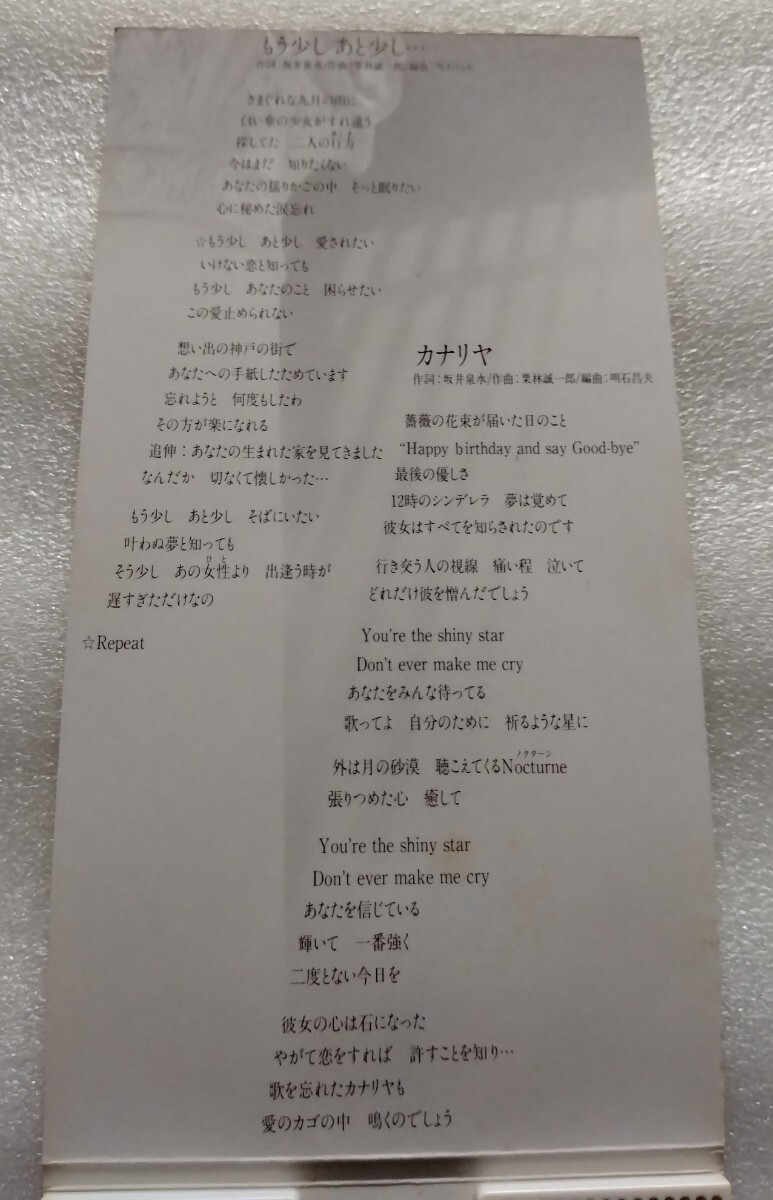 もう少し あと少し…
作詞：坂井泉水/作曲：栗林誠一郎/編曲：明石昌夫
きまぐれな九月の雨に
白い傘の少女がすれ違う
探してた　二人の行方
今はまだ　知りたくない
あなたの揺りかごの中　そっと眠りたい
心に秘めた涙忘れ
☆もう少し　あと少し　愛されたい
いけない恋と知っても
もう少し　あなたのこと　困らせたい
この愛止められない
想い出の神戸の街で
あなたへの手紙したためています
忘れようと　何度もしたわ
その方が楽になれる
追伸：あなたの生まれた家を見てきました
なんだか　切なくて懐しかった…
もう少し　あと少し　そばにいたい
叶わぬ夢と知っても
そう少し　あの女性より　出逢う時が
ひと
遅すぎただけなの
☆Repeat
カナリヤ
作詞：坂井泉水/作曲：栗林誠一郎/編曲：明石昌夫
薔薇の花束が届いた日のこと
“Happy birthday and say Good-bye”
最後の優しさ
12時のシンデレラ　夢は覚めて
彼女はすべてを知らされたのです
行き交う人の視線　痛い程　泣いて
どれだけ彼を憎んだでしょう
You're the shiny star
Don't ever make me cry
あなたをみんな待ってる
歌ってよ　自分のために　祈るような星に
外は月の砂漠　聴こえてくるNocturne
ノクターン
張りつめた心　癒して
You're the shiny star
Don't ever make me cry
あなたを信じている
輝いて　一番強く
二度とない今日を
彼女の心は石になった
やがて恋をすれば　許すことを知り…
歌を忘れたカナリヤも
愛のカゴの中　鳴くのでしょう